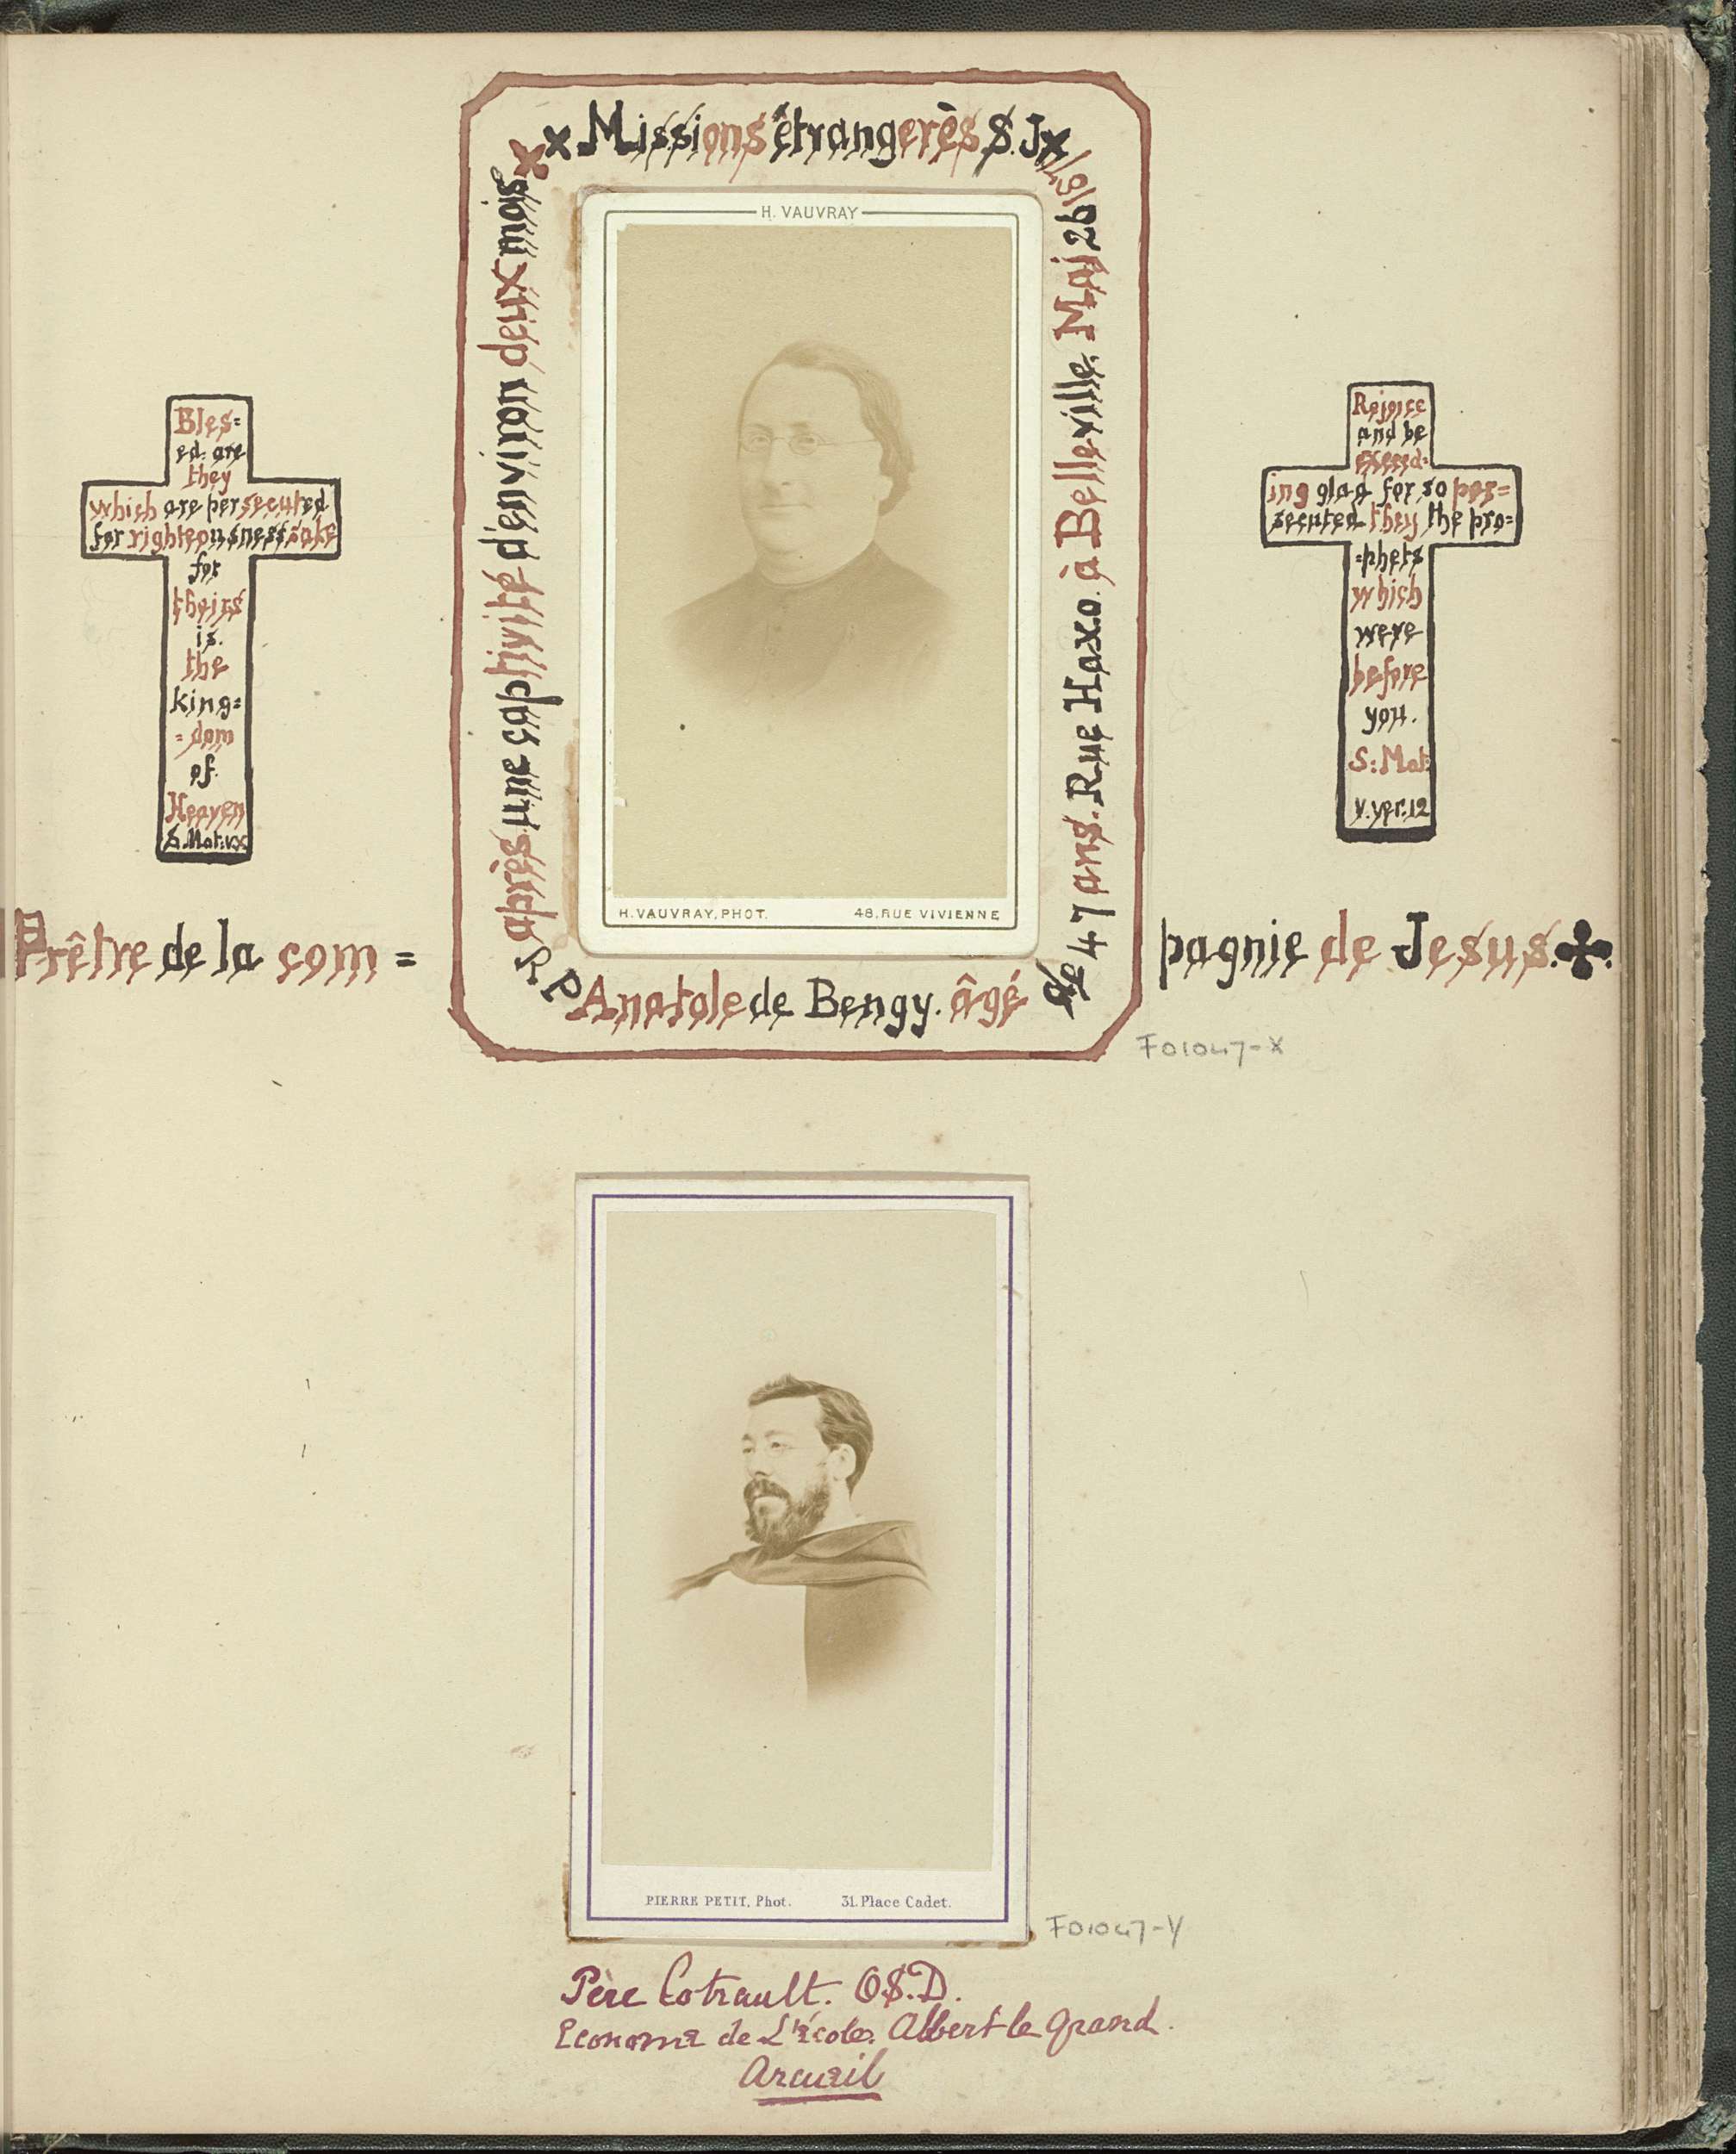 x x Missions êtrangerès S.J x
H. VAUVRAY
H. VAUVRAY, PHOT. 48, RUE VIVIENNE
R. P Anatole de Bengy. âgé de
47 ans. Rue Haxo. à Belleville. Maj 26 1871
après une captivité d'environ deux mois
Bles=
ed are
they
which are persecuted
for righteousness sake
for
theirs
is.
the
king=
=dom
of
Heaven
S. Mat:vx
Rejoice
and be
exceed=
ing glad for so per=
secuted they the pro=
=phets
which
were
before
you.
S: Mat:
v. ver. 12
Prêtre de la com=
pagnie de Jesus.
F01047-X
PIERRE PETIT, Phot. 31. Place Cadet.
F01047-Y
Père Cotrault. O.S.D.
Econome de L'école Albert le Grand.
Arcueil